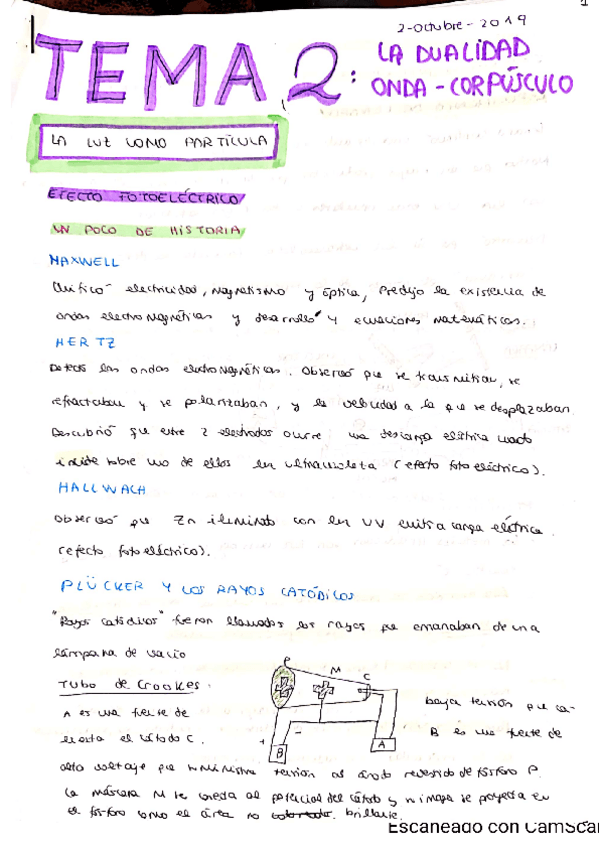 1
2-octubre-2019
TEMA 2: LA DUALIDAD
ONDA-CORPÚSCULO
LA LUZ COMO PARTÍCULA
EFECTO FOTOELÉCTRICO
UN POCO DE HISTORIA
MAXWELL
Unificó electricidad, magnetismo y óptica, Predijo la existencia de
ondas electromagnéticas y desarrolló 4 ecuaciones matemáticas.
HERTZ
Detectó las ondas electromagnéticas. Observó que se transmitían, se
refractaban y se polarizaban, y la velocidad a la que se desplazaban.
Descubrió que entre 2 electrodos ocurre una descarga eléctrica cuando
incide sobre uno de ellos luz ultravioleta (efecto fotoeléctrico).
HALLWACH
Observó que Zn iluminado con luz UV emitía carga eléctrica
(efecto fotoeléctrico).
PLÜCKER Y LOS RAYOS CATÓDICOS
"Rayos catódicos" fueron llamados los rayos que emanaban de una
lámpara de vacío
Tubo de Crookes.
P M C
A es una fuente de baja tensión que ca-
lienta el cátodo C. B es una fuente de
+ - B A
alto voltaje que suministra tensión al ánodo revestido de fósforo P.
La máscara M se conecta al potencial del cátodo y su imagen se proyecta en
el fósforo como el área no brillante.
Escaneado con CamSca